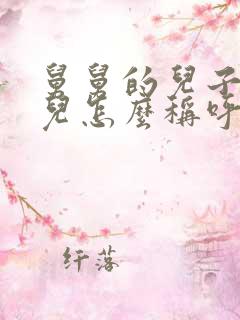 舅舅的兒子
兒怎麼稱呼
纤落